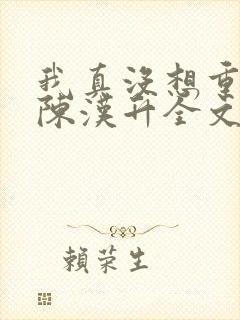 我真沒想重
陳漢升全文
賴荣生